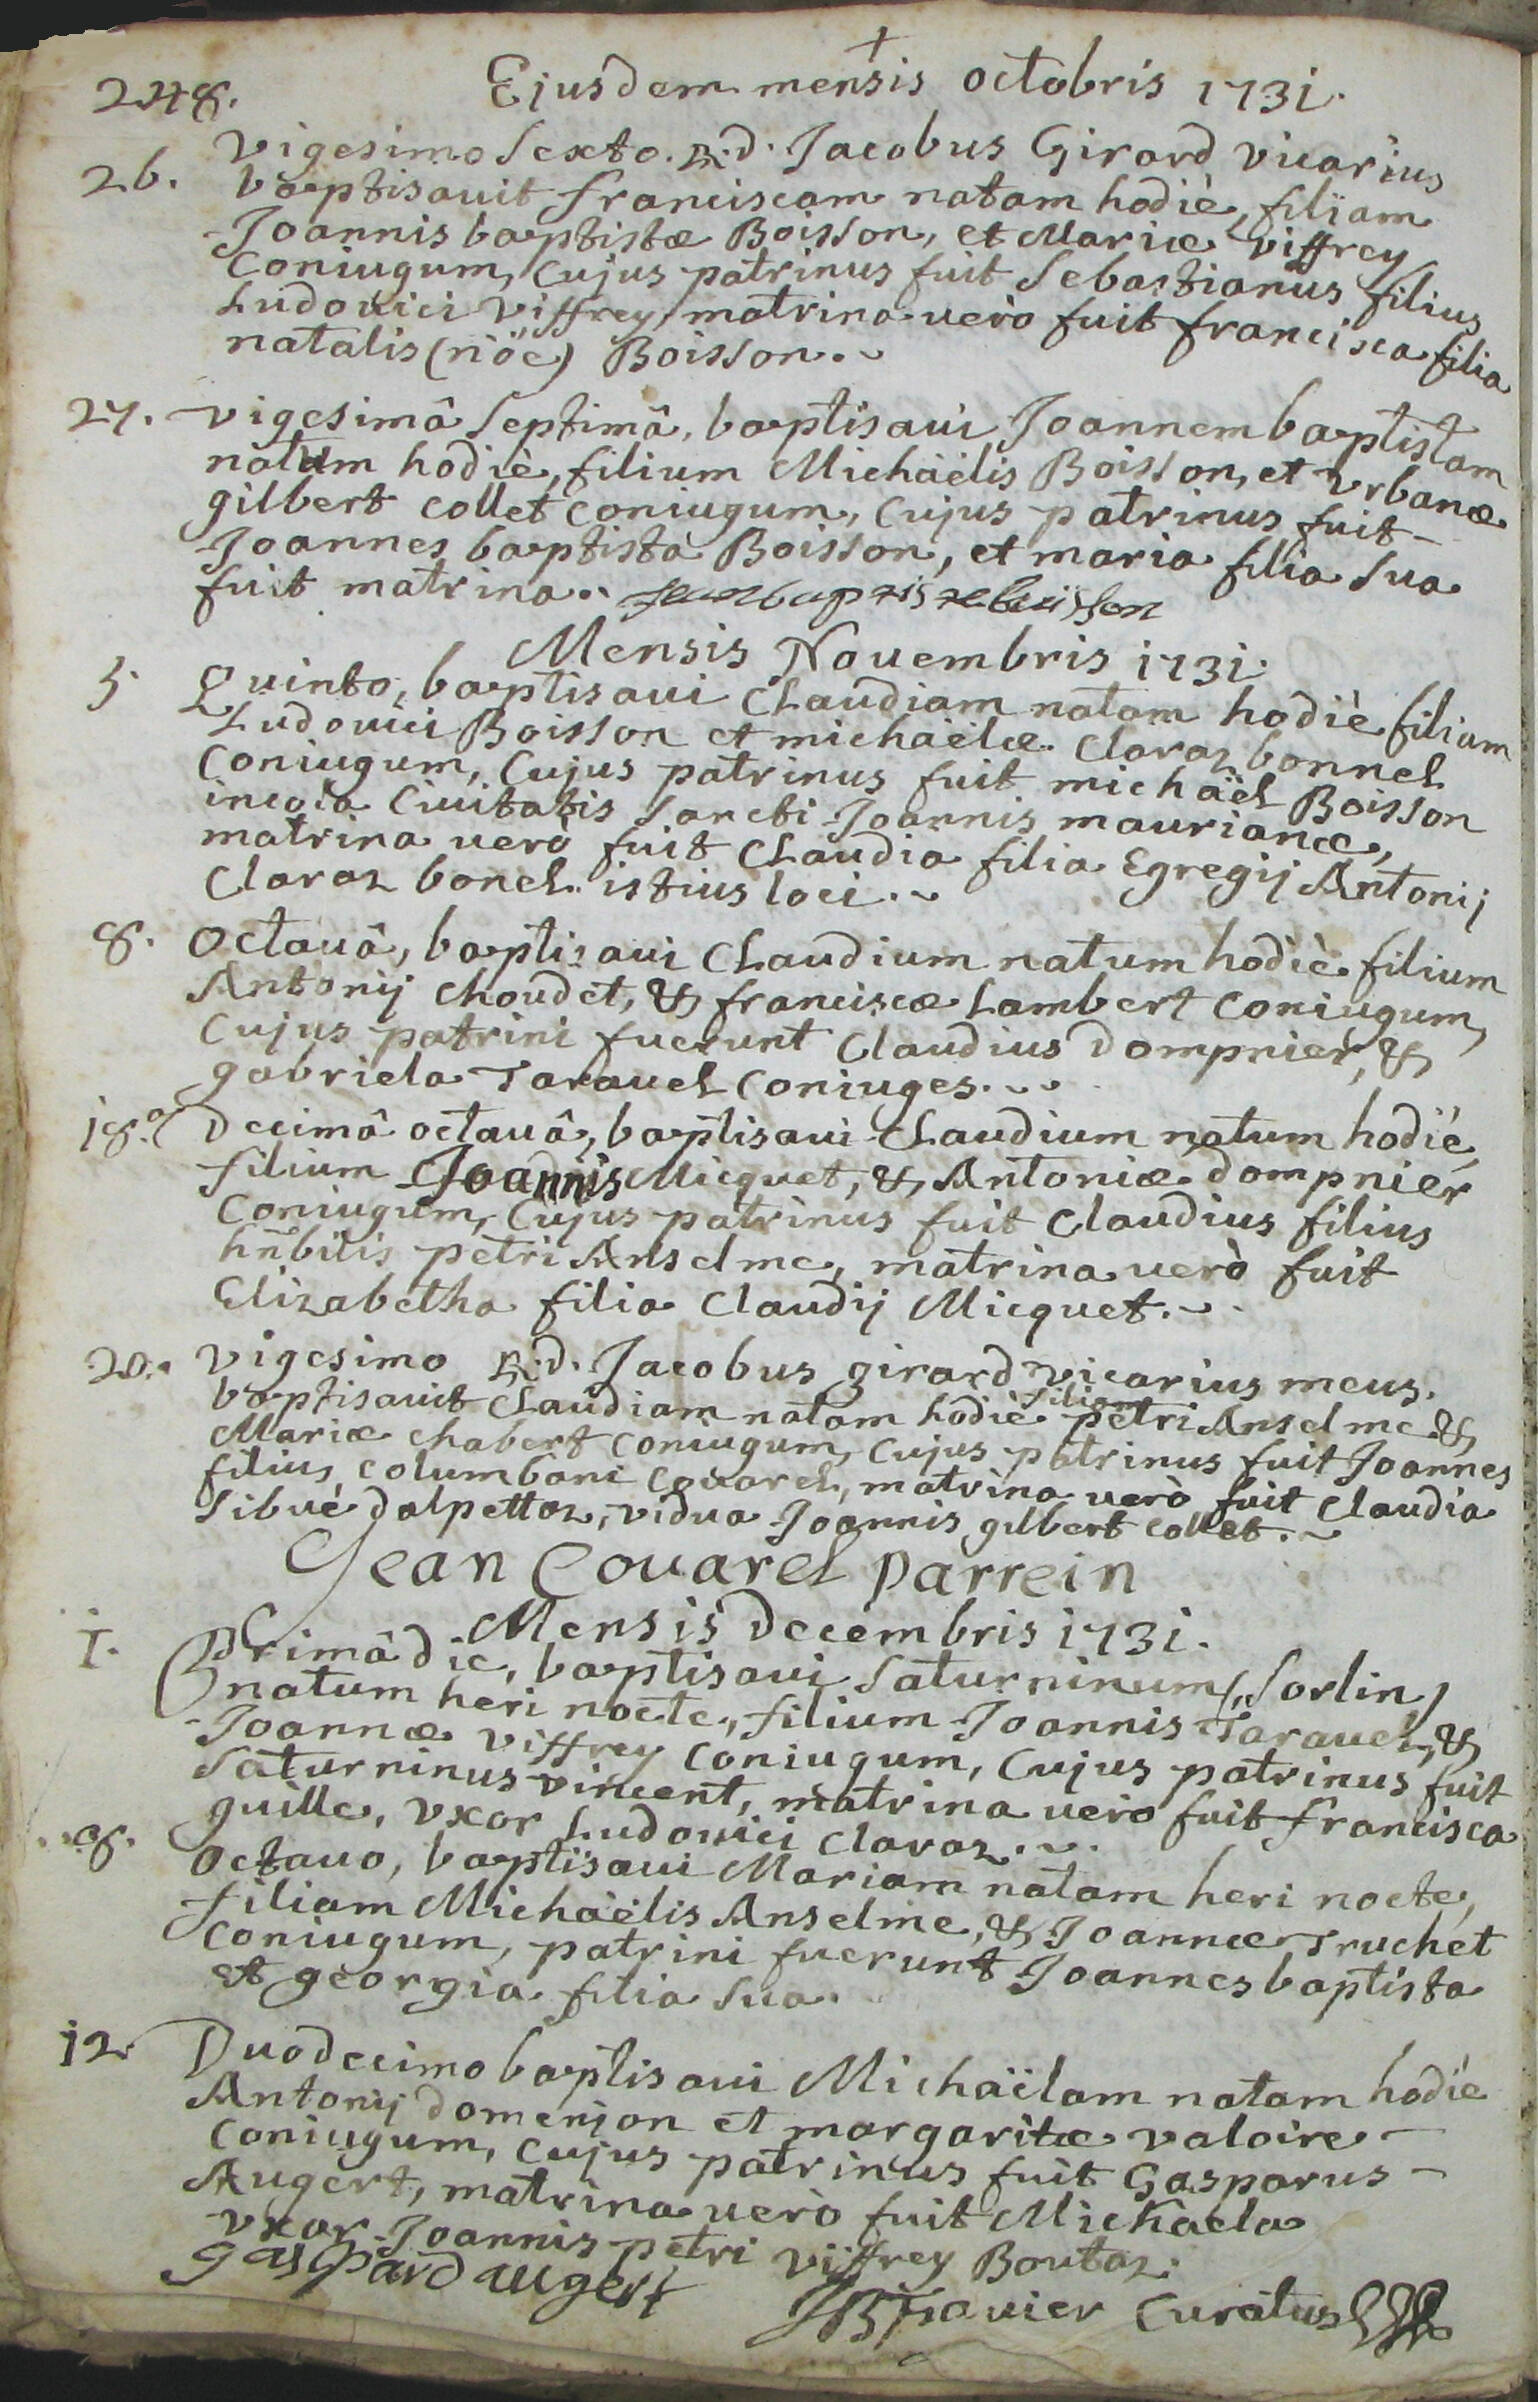 +
248. Ejusdem mensis octobris 1731.
26. vigesimo Sexto. R.d. Jacobus Girard vicarius
baptisauit franciscam natam hodiè, filiam
Joannis baptistæ Boisson, et Mariæ viffrey
Coniugum, Cujus patrinus fuit Sebastianus filius
Ludouici viffrey, matrina uerò fuit francisca filia
natalis (nöe) Boisson.
27. vigesimâ Septimâ, baptisaui Joannem baptistam
natum hodiè, filium Michäelis Boisson, et vrbanæ
gilbert collet Coniugum, Cujus patrinus fuit
Joannes baptista Boisson, et maria filia Sua
fuit matrina. jean baptiste buisson
Mensis Nouembris 1731.
5. Quinto, baptisaui Claudiam natam hodiè filiam
Ludouici Boisson et michäelæ Claraz bonnel
Coniugum, Cujus patrinus fuit michäel Boisson
incola Ciuitatis Sancti Joannis maurianæ,
matrina uerò fuit Claudia filia Egregij Antonij
Claraz bonel istius loci.
8. Octauâ, baptisaui Claudium natum hodiè filium
Antonij choudet, & franciscæ Lambert Coniugum,
Cujus patrini fuerunt Claudius dompnier, &
gabriela Tarauel Coniuges.
18.a Decimâ octauâ, baptisaui Claudium natum hodiè,
filium Joannis Micquet, & Antoniæ dompnier
Coniugum, Cujus patrinus fuit Claudius filius
hñbilis petri Anselme, matrina uerò fuit
Elizabetha filia Claudij Micquet.
20. vigesimo R.d. Jacobus girard vicarius meus.
baptisauit Claudiam natam hodiè filiam petri Anselme &
Mariæ chabert Coniugum, Cujus patrinus fuit Joannes
filius columbani Couarel, matrina uerò fuit Claudia
Sibué dalpettaz, vidua Joannis gilbert collet.
Jean Couarel parrein
Mensis decembris 1731.
1. Primâ die, baptisaui Saturninum (Sorlin)
natum heri nocte, filium Joannis Tarauel, &
Joannæ viffrey Coniugum, Cujus patrinus fuit
Saturninus vincent, matrina uero fuit francisca
guille, vxor Ludouici Claraz.
8. Octauo, baptisaui Mariam natam heri nocte,
filiam Michäelis Anselme, & Joannæ Truchet
Coniugum, patrini fuerunt Joannes baptista
et georgia filia Sua.
12. Duodecimo baptisaui Michäelam natam hodie
Antonij domenjon et margaritæ valoire
Coniugum, Cujus patrinus fuit Gasparus
Augert, matrina uerò fuit Michaela
vxor Joannis petri viffrey Boutaz.
gaspard augert
JB frauier Curatus